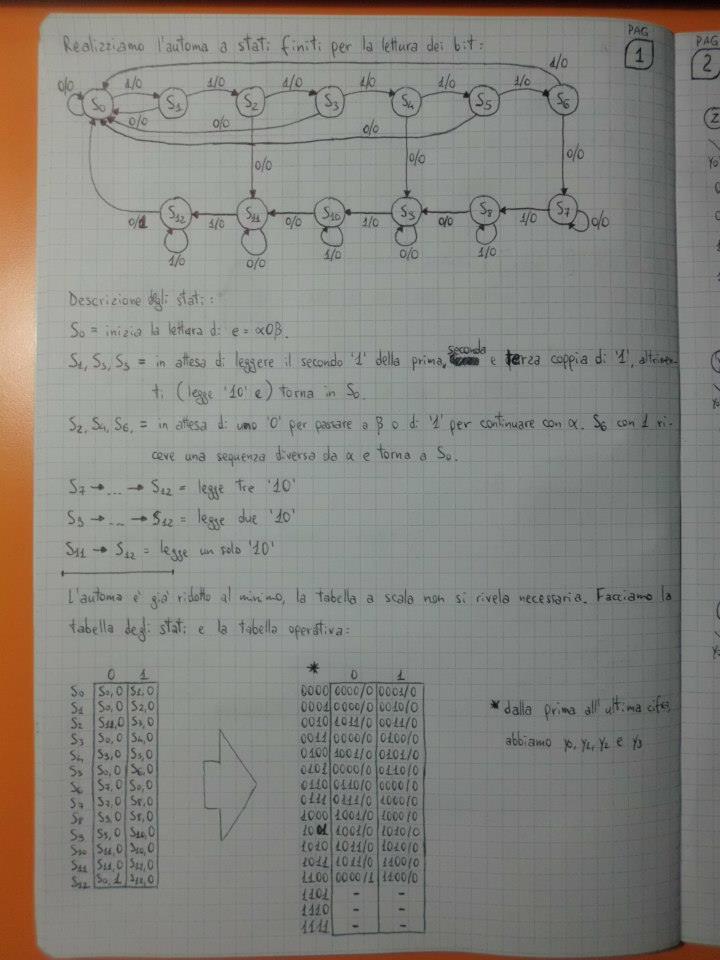 PAG
1
PAG
2
Realizziamo l'automa a stati finiti per la lettura dei bit:
1/0
0/0 1/0 1/0 1/0 1/0 1/0 1/0
S0 S1 S2 S3 S4 S5 S6
0/0 0/0 0/0
0/0 0/0 0/0
S12 S11 S10 S9 S8 S7
0/1 1/0 0/0 1/0 0/0 1/0 0/0
1/0 0/0 1/0 0/0 1/0
Descrizione degli stati:
S0 = inizia la lettura di e = α0β.
S1, S3, S5 = in attesa di leggere il secondo '1' della prima, seconda e terza coppia di '1', altrimen-
ti (legge '10' e) torna in S0.
S2, S4, S6, = in attesa di uno '0' per passare a β o di '1' per continuare con α. S6 con 1 ri-
ceve una sequenza diversa da α e torna a S0.
S7 → ... → S12 = legge tre '10'
S9 → ... → S12 = legge due '10'
S11 → S12 = legge un solo '10'
L'automa e' gia' ridotto al minimo, la tabella a scala non si rivela necessaria. Facciamo la
tabella degli stati e la tabella operativa:
0 1
S0 S0,0 S1,0
S1 S0,0 S2,0
S2 S11,0 S3,0
S3 S0,0 S4,0
S4 S9,0 S5,0
S5 S0,0 S6,0
S6 S7,0 S0,0
S7 S7,0 S8,0
S8 S9,0 S8,0
S9 S9,0 S10,0
S10 S11,0 S10,0
S11 S11,0 S12,0
S12 S0,1 S12,0
* 0 1
0000 0000/0 0001/0
0001 0000/0 0010/0
0010 1011/0 0011/0
0011 0000/0 0100/0
0100 1001/0 0101/0
0101 0000/0 0110/0
0110 0110/0 0000/0
0111 0111/0 1000/0
1000 1001/0 1000/0
1001 1001/0 1010/0
1010 1011/0 1010/0
1011 1011/0 1100/0
1100 0000/1 1100/0
1101 - -
1110 - -
1111 - -
* dalla prima all'ultima cifra,
abbiamo y0, y1, y2 e y3